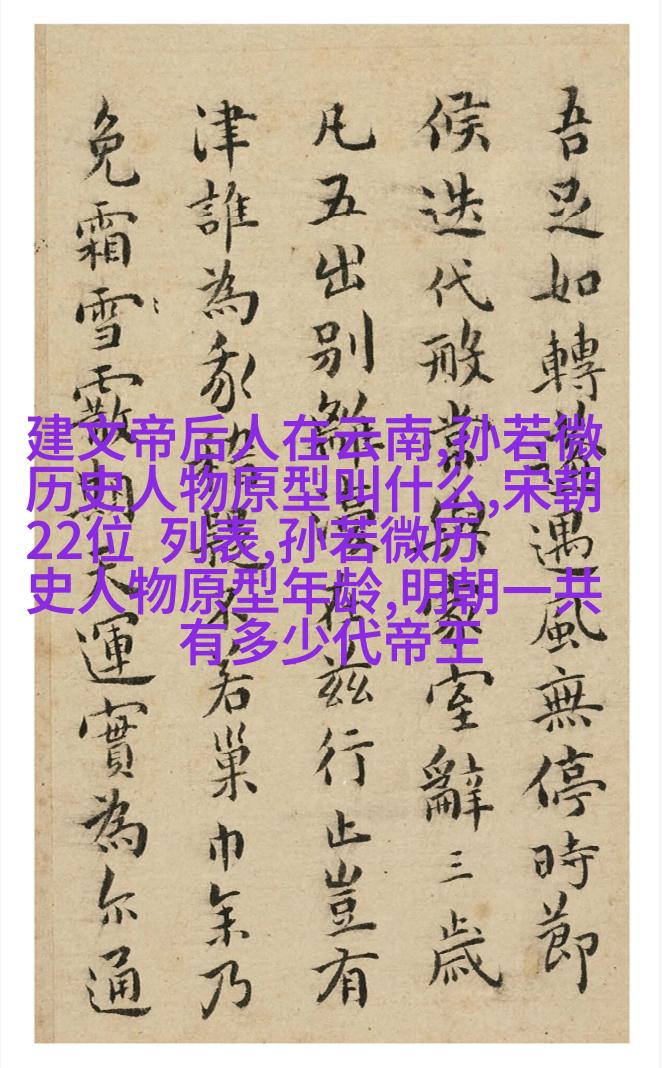 吾足如轉遇風無停時節
候迭代般常與家室辭三歲
凡五出別離漫於茲行止豈有
津誰為不若巢巾車乃
免霜雪霰期天運實為尔通
建文帝后人在云南,孙若微
历史人物原型叫什么,宋朝
22位 列表,孙若微历
史人物原型年龄,明朝一共
有多少代帝王